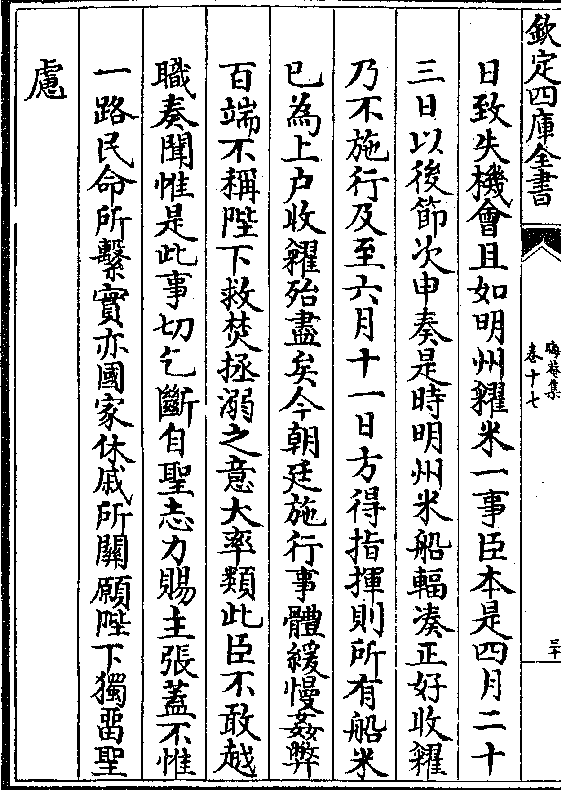 欽定四庫全書
晦菴集
卷十七
三十
日致失機會且如明州糴米一事臣本是四月二十
三日以後節次申奏是時明州米船輻湊正好收糴
乃不施行及至六月十一日方得指揮則所有船米
已為上户收糴殆盡矣今朝廷施行事體緩慢姦弊
百端不稱陛下救焚拯溺之意大率類此臣不敢越
職奏聞惟是此事切乞斷自聖志力賜主張蓋不惟
一路民命所繫實亦國家休戚所關願陛下獨畱聖
慮